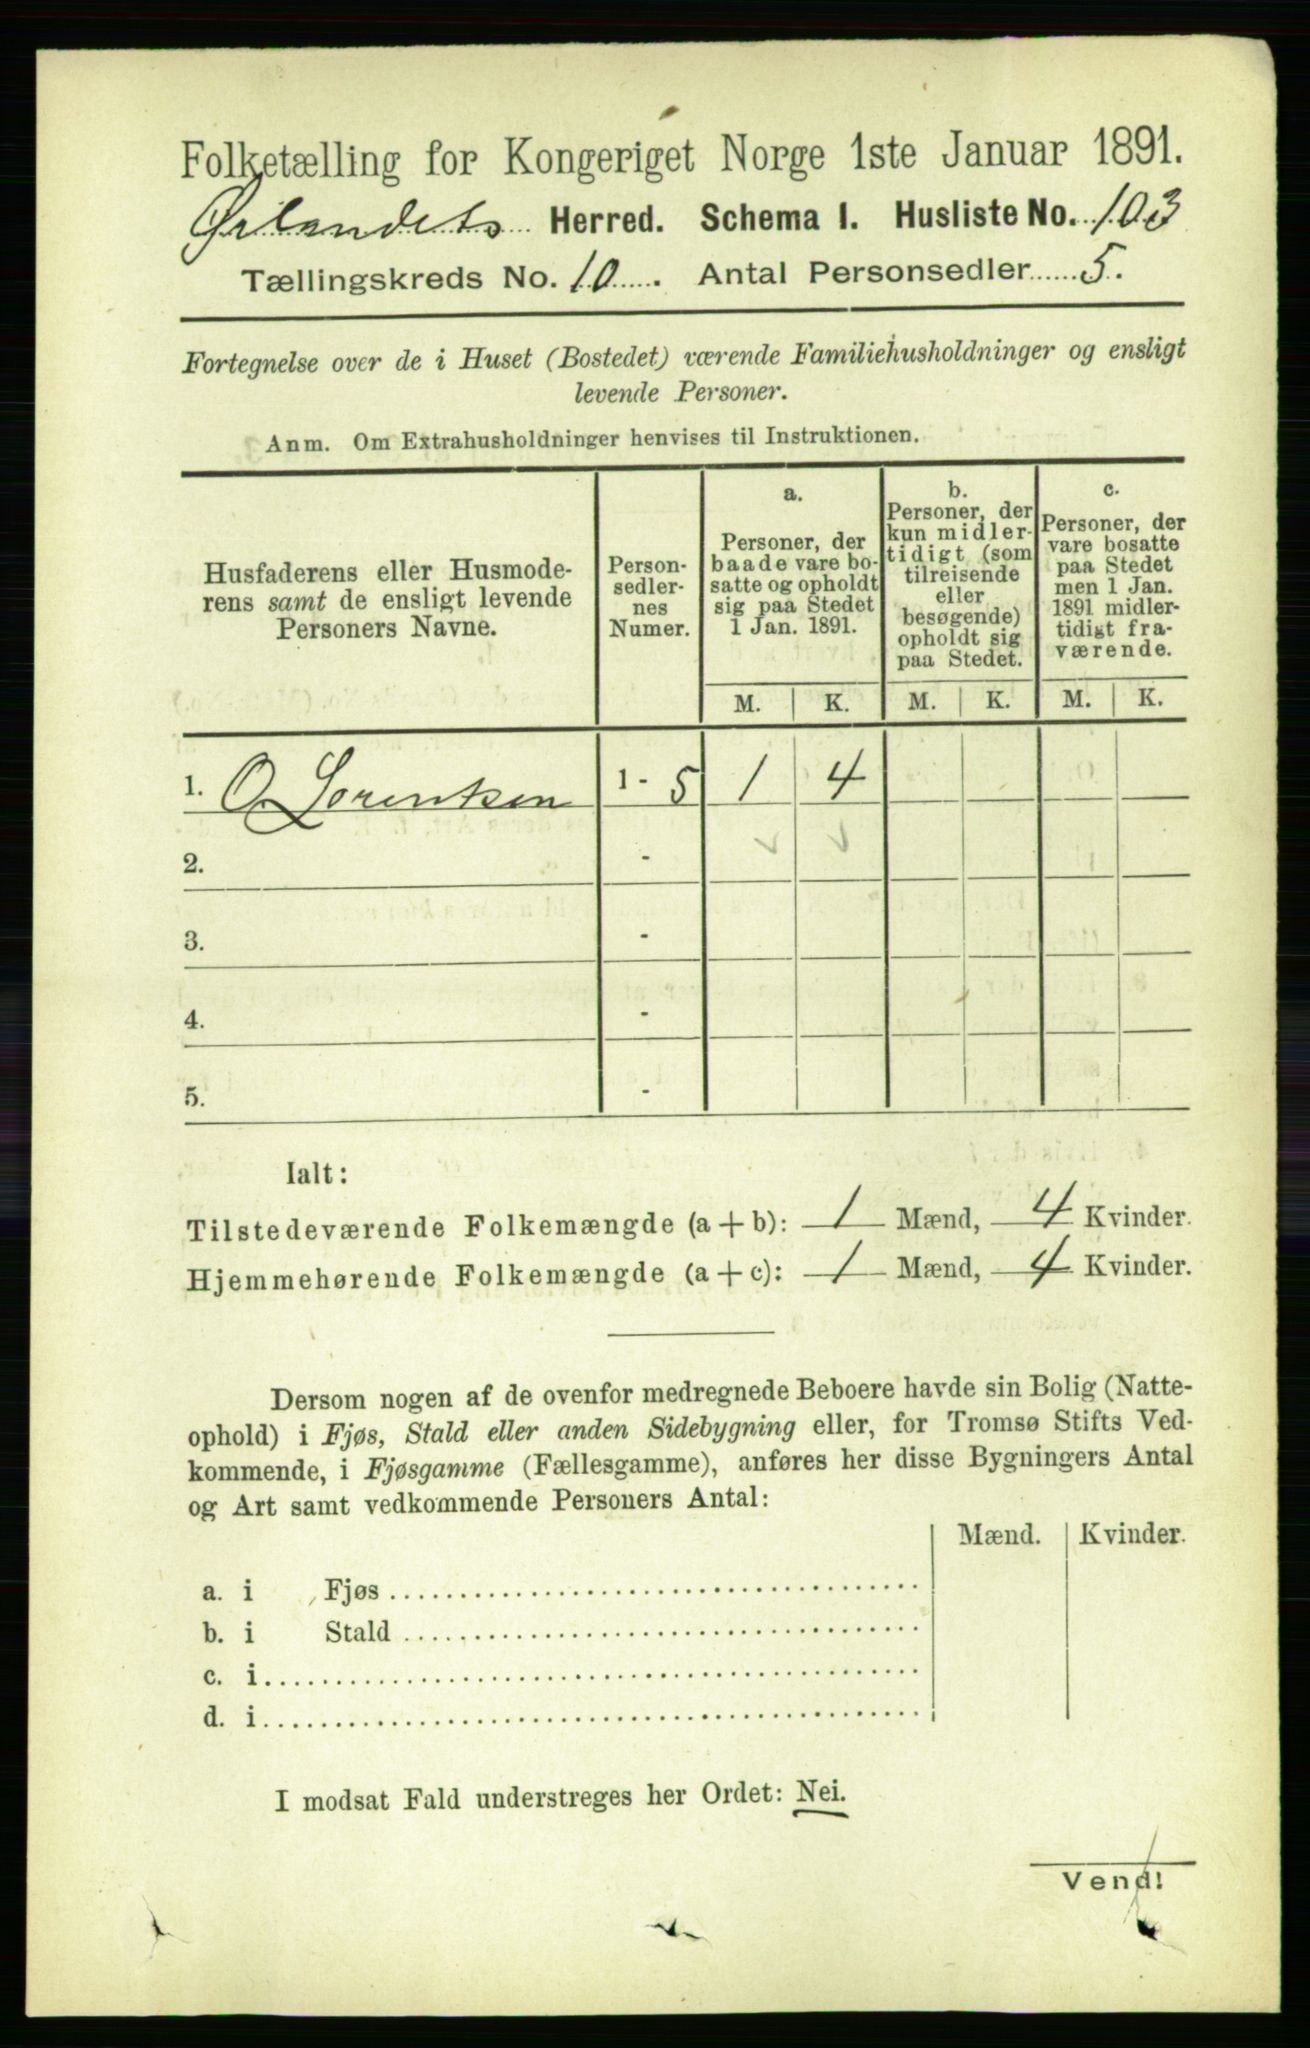 Folketælling for Kongeriget Norge 1ste Januar 1891.
Ørlandets Herred. Schema I. Husliste No. 103
Tællingskreds No. 10. Antal Personsedler 5.
Fortegnelse over de i Huset (Bostedet) værende Familiehusholdninger og ensligt
levende Personer.
Anm. Om Extrahusholdninger henvises til Instruktionen.
Husfaderens eller Husmode-
rens samt de ensligt levende
Personers Navne.
Person-
sedler-
nes
Numer.
a.
Personer, der
baade vare bo-
satte og opholdt
sig paa Stedet
1 Jan. 1891.
b.
Personer, der
kun midler-
tidigt (som
tilreisende
eller
besøgende)
opholdt sig
paa Stedet.
c.
Personer, der
vare bosatte
paa Stedet
men 1 Jan.
1891 midler-
tidigt fra-
værende.
M. K. M. K. M. K.
1. O. Lorentsen 1 - 5 1 4
2. -
3. -
4. -
5. -
Ialt:
Tilstedeværende Folkemængde (a + b): 1 Mænd, 4 Kvinder.
Hjemmehørende Folkemængde (a + c): 1 Mænd, 4 Kvinder.
Dersom nogen af de ovenfor medregnede Beboere havde sin Bolig (Natte-
ophold) i Fjøs, Stald eller anden Sidebygning eller, for Tromsø Stifts Ved-
kommende, i Fjøsgamme (Fællesgamme), anføres her disse Bygningers Antal
og Art samt vedkommende Personers Antal:
Mænd. Kvinder.
a. i Fjøs
b. i Stald
c. i
d. i
I modsat Fald understreges her Ordet: Nei.
Vend!